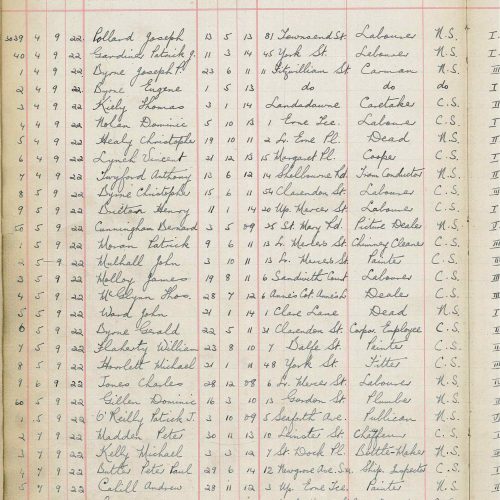 3039 4 9 22 Pollard Joseph 13 5 13 31 Townsend St. Labourer N.S. I
40 4 9 22 Gardiner Patrick J. 11 3 14 45 York St. Labourer N.S.
1 4 9 22 Byrne Joseph P. 23 6 11 11 Fitzwilliam St Carman N.S.
2 4 9 22 Byrne Eugene 1 5 13 do do do I
3 4 9 22 Kiely Thomas 3 1 14 Landsdowne Caretaker C.S.
4 4 9 22 Nolan Dominic 5 10 13 1 Erne Tce. Labourer C.S. I
5 4 9 22 Healy Christopher 19 10 11 2 Lr. Erne Pl. Dead N.S.
6 4 9 22 Lynch Vincent 21 12 13 15 Margaret Pl. Cooper C.S. I
7 4 9 22 Twyford Anthony 13 6 12 14 Shelbourne Rd. Tram Conductor N.S. II
8 5 9 22 Byrne Christopher 15 6 11 54 Clarendon St. Labourer C.S.
9 5 9 22 Britton Henry 11 1 14 20 Up. Mercer St. Labourer C.S. I
50 5 9 22 Cunningham Bernard 3 5 09 35 St. Mary Rd. Picture Dealer N.S.
1 5 9 22 Moran Patrick 9 6 11 13 Lr. Mercer St. Chimney Cleaner C.S. III
2 5 9 22 Mulhall John 3 10 11 13 Lr. Mercer St. Painter C.S.
3 5 9 22 Molloy James 19 8 11 6 Sandwith Court Labourer C.S. III
4 5 9 22 McGlynn Thos. 28 7 12 6 Anne's Cot. Anne's L. Dealer C.S.
5 5 9 22 Ward John 21 1 14 1 Clare Lane Dead N.S. I
6 5 9 22 Byrne Gerald 22 5 11 31 Clarendon St. Corpn. Employee C.S. II
7 5 9 22 Flaherty William 23 8 10 7 Balfe St. Painter C.S.
8 5 9 22 Howlett Michael 21 1 11 48 York St. Fitter C.S.
9 6 9 22 Jones Charles 28 12 08 6 Lr. Mercer St. Labourer N.S.
60 5 9 22 Gillen Dominic 16 3 10 13 Gordon St. Plumber N.S.
1 5 9 22 O'Reilly Patrick J. 3 10 09 5 Seaforth Ave. Publican N.S.
2 7 9 22 Madden Peter 30 11 13 10 Leinster St. Chauffeur C.S. I
3 7 9 22 Kelly Michael 3 3 12 7 St. Dock Pl. Bottle-Maker N.S.
4 7 9 22 Butler Peter Paul 29 6 14 12 Newgrove Ave. Ship. Inspector C.S. I
5 7 9 22 Cahill Andrew 28 11 12 3 Up. Erne Tce. Painter N.S. I